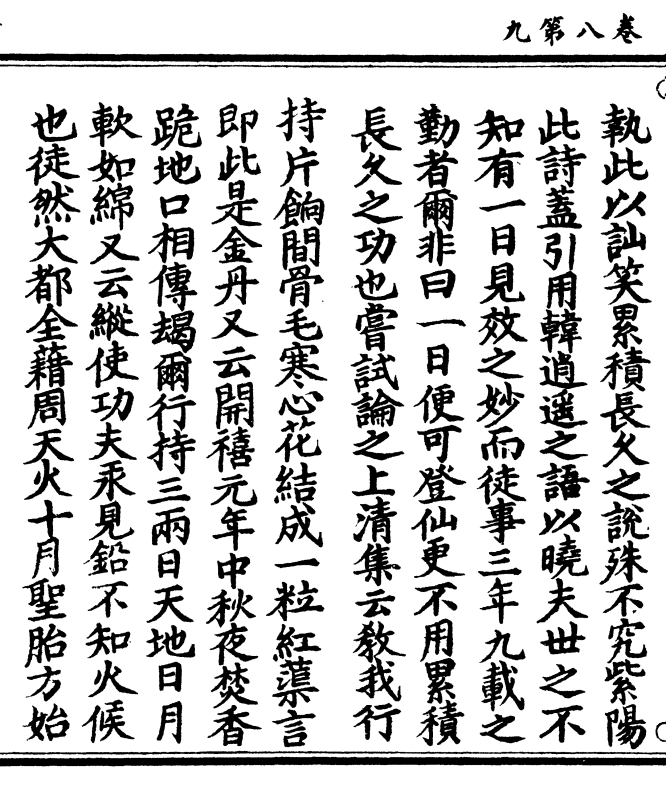 卷八第九
執此以訕笑累積長久之說殊不究紫陽
此詩蓋引用韓逍遥之語以曉夫世之不
知有一日見效之妙而徒事三年九載之
勤者爾非曰一日便可登仙更不用累積
長久之功也嘗試論之上清集云教我行
持片餉間骨毛寒心花結成一粒紅蕖言
即此是金丹又云開禧元年中秋夜焚香
跪地口相傳朅爾行持三兩日天地日月
軟如綿又云縱使功夫汞見鉛不知火候
也徒然大都全藉周天火十月聖胎方始